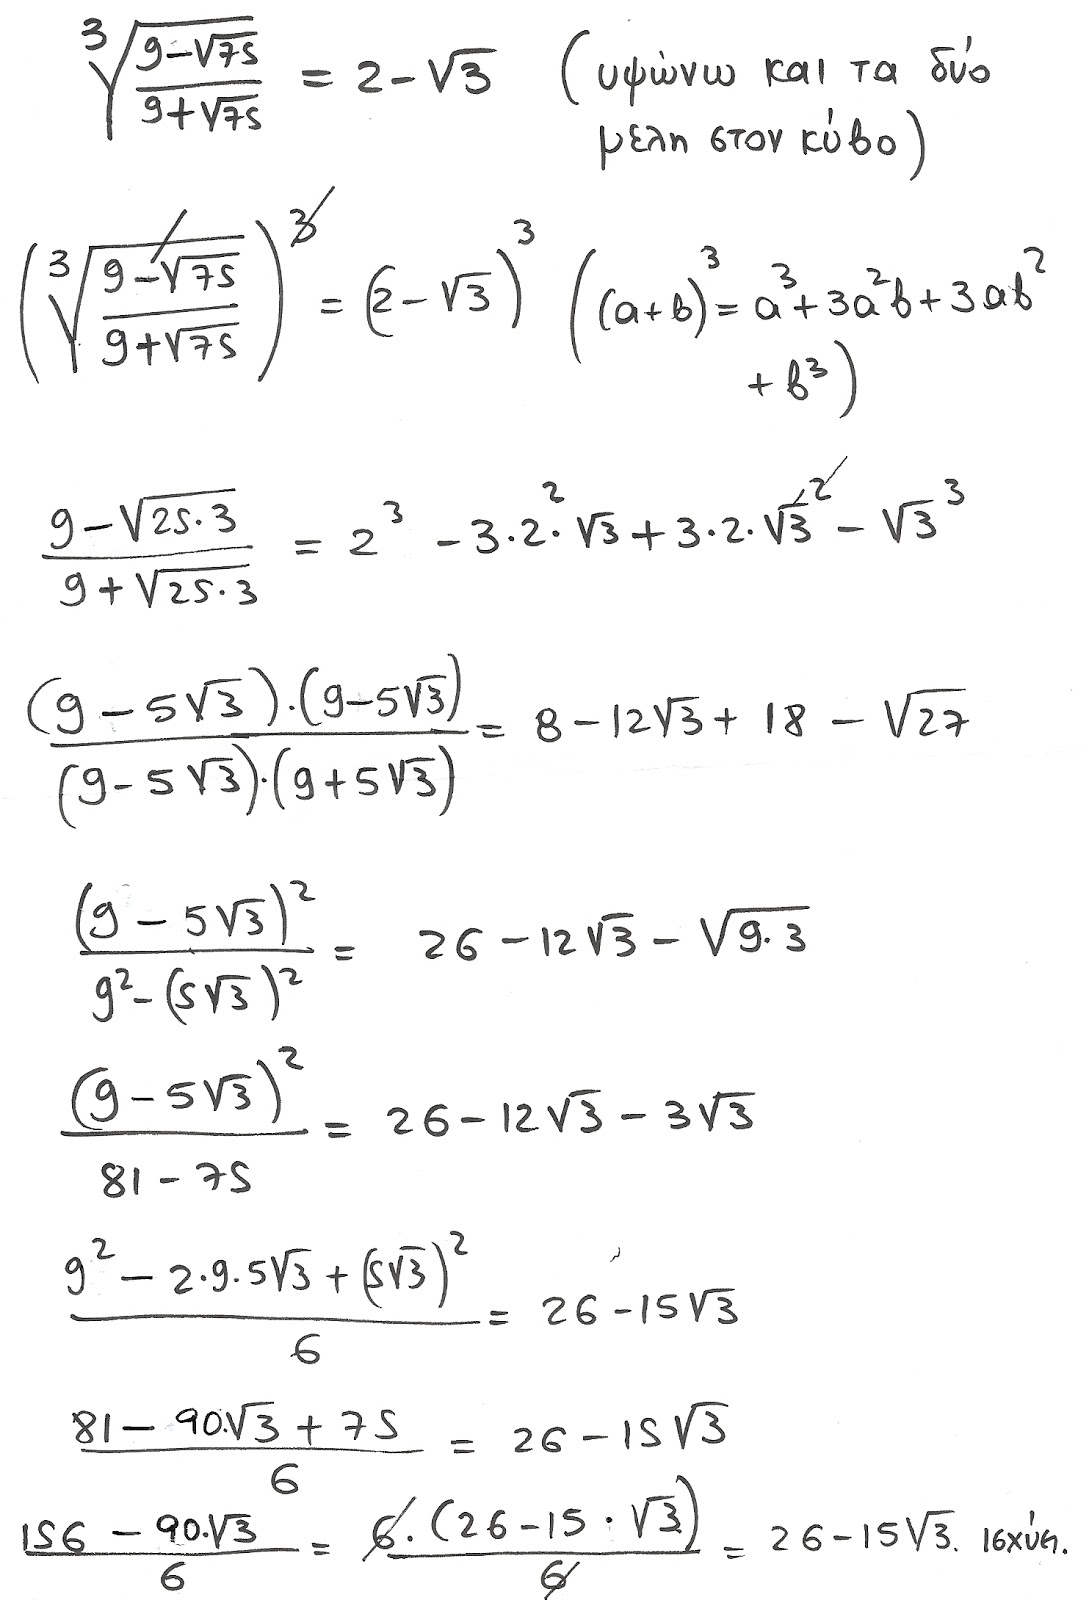 ∛((9-√75)/(9+√75)) = 2-√3 (υψώνω και τα δύο
μελη στον κύβο)
(∛((9-√75)/(9+√75)))³ = (2-√3)³ ((a+b)³ = a³+3a²b+3ab²
+b³)
(9-√(25·3))/(9+√(25·3)) = 2³-3·2²·√3+3·2·√3²-√3³
((9-5√3)·(9-5√3))/((9-5√3)·(9+5√3)) = 8-12√3+18-√27
(9-5√3)²/(9²-(5√3)²) = 26-12√3-√(9·3)
(9-5√3)²/(81-75) = 26-12√3-3√3
(9²-2·9·5√3+(5√3)²)/6 = 26-15√3
(81-90·√3+75)/6 = 26-15√3
(156-90·√3)/6 = (6·(26-15·√3))/6 = 26-15√3. ισχύει.